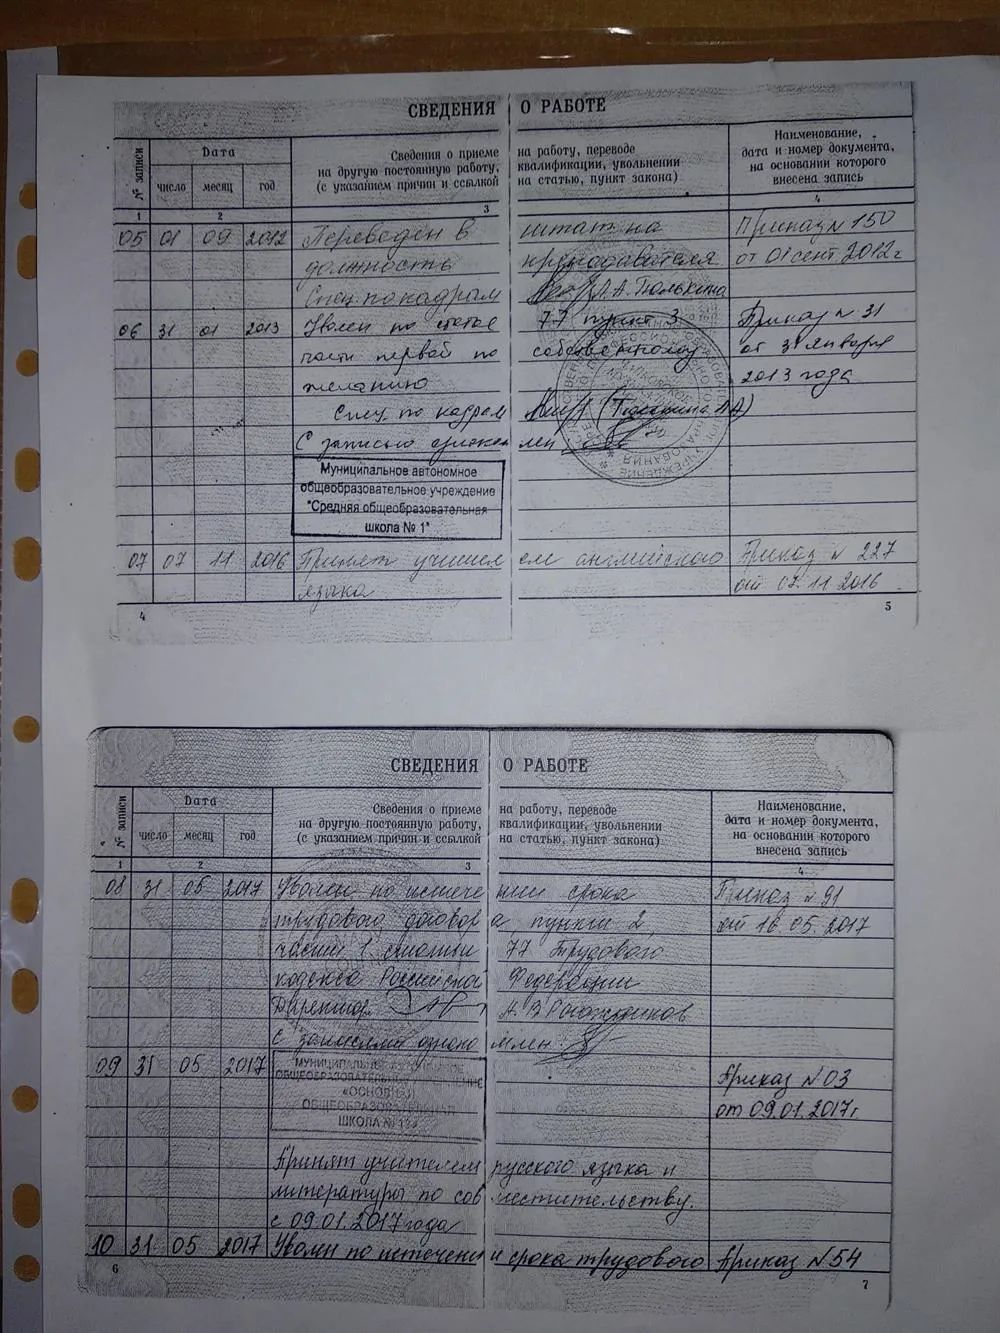 СВЕДЕНИЯ О РАБОТЕ
№ записи
Дата
число месяц год
Сведения о приеме на работу, переводе
на другую постоянную работу, квалификации, увольнении
(с указанием причин и ссылкой на статью, пункт закона)
Наименование,
дата и номер документа,
на основании которого
внесена запись
1 2 3 4
05 01 09 2012 Переведен в штат на Приказ № 150
должность преподавателя от 01 сент 2012 г
Спец. по кадрам Л.А. Тюлькина
06 31 01 2013 Уволен по статье 77 пункт 3 Приказ № 31
части первой по собственному от 31 января
желанию 2013 года
Спец. по кадрам
С записью ознакомлен
Муниципальное автономное
общеобразовательное учреждение
"Средняя общеобразовательная
школа № 1"
07 07 11 2016 Принят учителем английского Приказ № 227
языка от 07.11.2016
4 5
СВЕДЕНИЯ О РАБОТЕ
№ записи
Дата
число месяц год
Сведения о приеме на работу, переводе
на другую постоянную работу, квалификации, увольнении
(с указанием причин и ссылкой на статью, пункт закона)
Наименование,
дата и номер документа,
на основании которого
внесена запись
1 2 3 4
08 31 05 2017 Уволен по истечении срока Приказ № 91
трудового договора пункт 2 от 16.05.2017
части 1 статьи 77 Трудового
кодекса Российской Федерации
Директор А.В.
С записями ознакомлен
09 31 05 2017 МУНИЦИПАЛЬНОЕ
ОБЩЕОБРАЗОВАТЕЛЬНОЕ УЧРЕЖДЕНИЕ Приказ № 03
«ОСНОВНАЯ от 09.01.2017 г
ОБЩЕОБРАЗОВАТЕЛЬНАЯ
ШКОЛА
Принят учителем русского языка и
литературы по совместительству.
с 09.01.2017 года
10 31 05 2017 Уволен по истечении срока трудового Приказ № 54
6 7